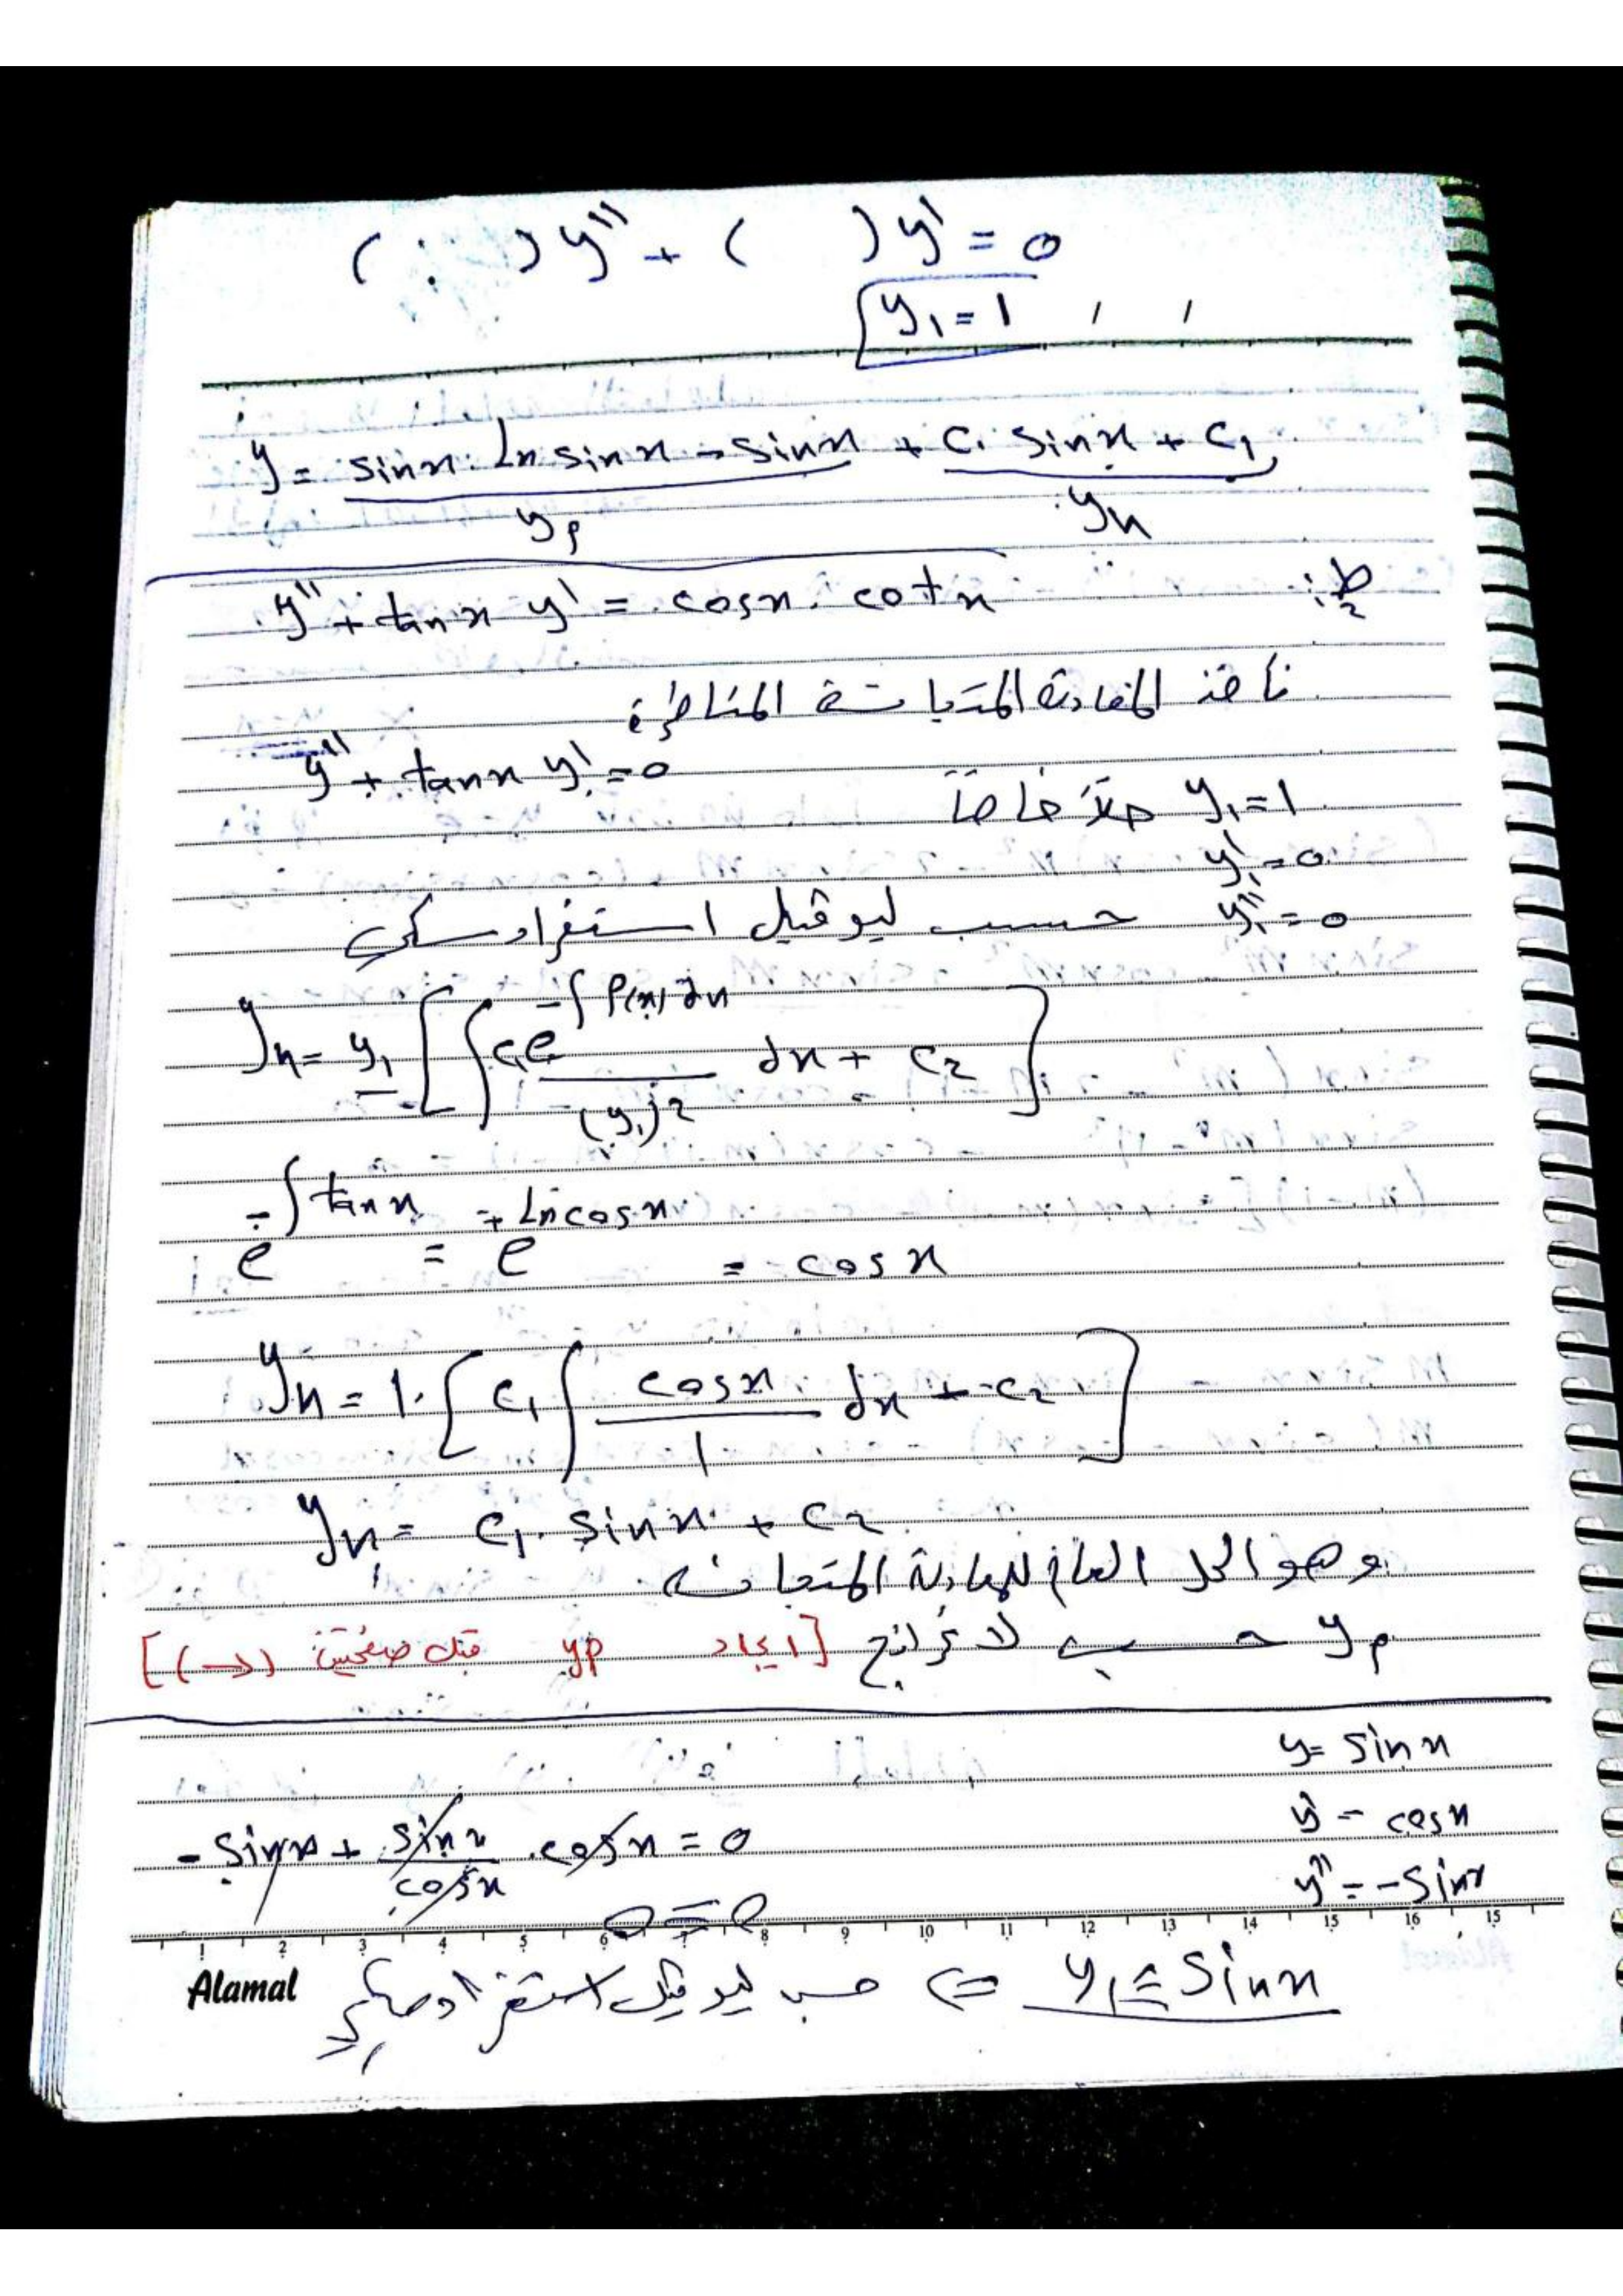 ( : ) y'' + ( ) y' = 0
y₁ = 1 , ,
y = sinx . Ln sinx - sinx + c₁ sinx + c₁
yp yh
ط2:
y'' + tanx y' = cosx . cotx
نأخذ المعادلة المتجانسة المناظرة
y'' + tanx y' = 0
y₁ = 1 حلاً خاصاً
y₁' = 0
y₁'' = 0 حسب ليوفيل استغرادسكي
yh = y₁ [ ∫ c₁e^(-∫P(x)dx) / (y₁)² dx + c₂ ]
e^(-∫tanx) = e^(+Lncosx) = cosx
yh = 1 . [ c₁ ∫ cosx / 1 dx + c₂ ]
yh = c₁ . sinx + c₂
وهو الحل العام للمعادلة المتجانسة
yp حسب لاغرانج [ايجاد yp قبل صفحتين (→)]
y = sinx
y' = cosx
- sinx + sinx / cosx . cosx = 0
y'' = -sinx
0 = 0
1 2 3 4 5 6 7 8 9 10 11 12 13 14 15 16 15
y₁ = sinx ⇐ حسب ليوفيل استغرادسكي
Alamal